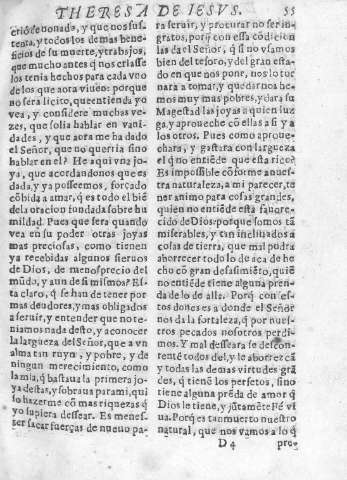 THERESA DE IESVS.
55
crió de nonada, y que nos sus-
tenta, y todos los demas bene-
ficios de su muerte, y trabajos,
que mucho antes q̃ nos criasse
los tenia hechos para cada vno
de los que aora viuen: porque
no sera licito, que entienda yo
vea, y considere muchas ve-
zes, que solia hablar en vani-
dades, y que aora me ha dado
el Señor, que no querria sino
hablar en el? He aqui vna jo-
ya, que acordandonos que es
dada, y ya posseemos, forçado
cõbida a amar, q̃ es todo el biẽ
dela oracion fundada sobre hu
mildad. Pues que sera quando
vea en su poder otras joyas
mas preciosas, como tienen
ya recebidas algunos sieruos
de Dios, de menosprecio del
mũdo, y aun de si mismos? Es-
ta claro, q̃ se han de tener por
mas deudores, y mas obligados
a seruir, y entender que no te-
niamos nada desto, y a conocer
la largueza del Señor, que a vn
alma tan ruyn, y pobre, y de
ningun merecimiento, como
la mia, q̃ bastaua la primera jo-
ya destas, y sobraua para mi, qui
so hazerme cõ mas riquezas q̃
yo supiera dessear. Es menes-
ter sacar fuerças de nueuo pa-
ra seruir, y procurar no ser in-
gratos, porq̃ con essa cõdicion
las da el Señor, q̃ si no vsamos
bien del tesoro, y del gran esta-
do en que nos pone, nos lo tor
nara a tomar, y quedarnos he-
mos muy mas pobres, y dara su
Magestad las joyas a quien luz
ga, y aproueche cõ ellas a si y a
los otros. Pues como aproue-
chara, y gastara con largueza
el q̃ no entiẽde que esta rico?
Es impossible cõforme a nues-
tra naturaleza, a mi parecer, te
ner animo para cosas grandes,
quien no entiẽde esta fauore-
cido de Dios: porque somos tã
miserables, y tan inclinados a
cosas de tierra, que mal podra
aborrecer todo lo de aca de he-
cho cõ gran desasimiẽto, quiẽ
no entiẽde tiene alguna pren-
da de lo de alla. Porq̃ con es-
tos dones es a donde el Señor
nos da la fortaleza, q̃ por nues-
tros pecados nosotros perdi-
mos. Y mal desseara se descon-
tentẽ todos del, y le aborrezcã
y todas las demas virtudes grã
des, q̃ tienẽ los perfetos, sino
tiene alguna prẽda de amor q̃
Dios le tiene, y jũtamẽte Fè vi
ua. Porq̃ es tan muerto nuestro
natural, que nos vamos a lo q̃
D 4
pre-